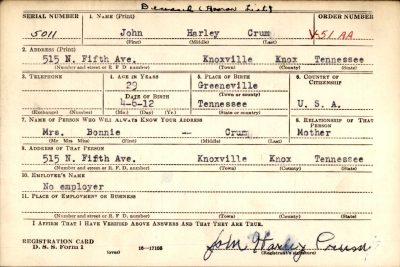 Deceased (Honor List)
SERIAL NUMBER 1. NAME (Print) ORDER NUMBER
5011 John Harley Crum V-51 AA
(First) (Middle) (Last)
2. ADDRESS (Print)
515 N. Fifth Ave. Knoxville Knox Tennessee
(Number and street or R. F. D. number) (Town) (County) (State)
3. TELEPHONE 4. AGE IN YEARS 5. PLACE OF BIRTH 6. COUNTRY OF CITIZENSHIP
29 Greeneville
DATE OF BIRTH (Town or county)
4-6-12 Tennessee U. S. A.
(Exchange) (Number) (Mo.) (Day) (Yr.) (State or country)
7. NAME OF PERSON WHO WILL ALWAYS KNOW YOUR ADDRESS 8. RELATIONSHIP OF THAT PERSON
Mrs. Bonnie — Crum Mother
(Mr. Mrs. Miss) (First) (Middle) (Last)
9. ADDRESS OF THAT PERSON
515 N. Fifth Ave. Knoxville Knox Tennessee
(Number and street or R. F. D. number) (Town) (County) (State)
10. EMPLOYER'S NAME
No employer
11. PLACE OF EMPLOYMENT OR BUSINESS
(Number and street or R. F. D. number) (Town) (County) (State)
I AFFIRM THAT I HAVE VERIFIED ABOVE ANSWERS AND THAT THEY ARE TRUE.
REGISTRATION CARD
D. S. S. Form 1 (over) 16—17105 John Harley Crum
(Registrant's signature)